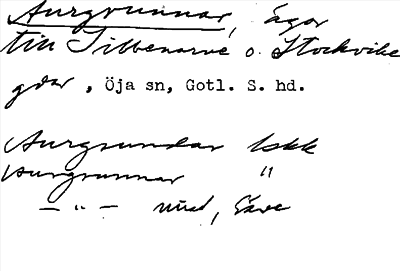 Aurgrunnar, ägor
till Silbenarve o. Stockvike
gdar, Öja sn, Gotl. S. hd.
Aurgrundar lskk
Aurgrunnar "
— " — , Säve